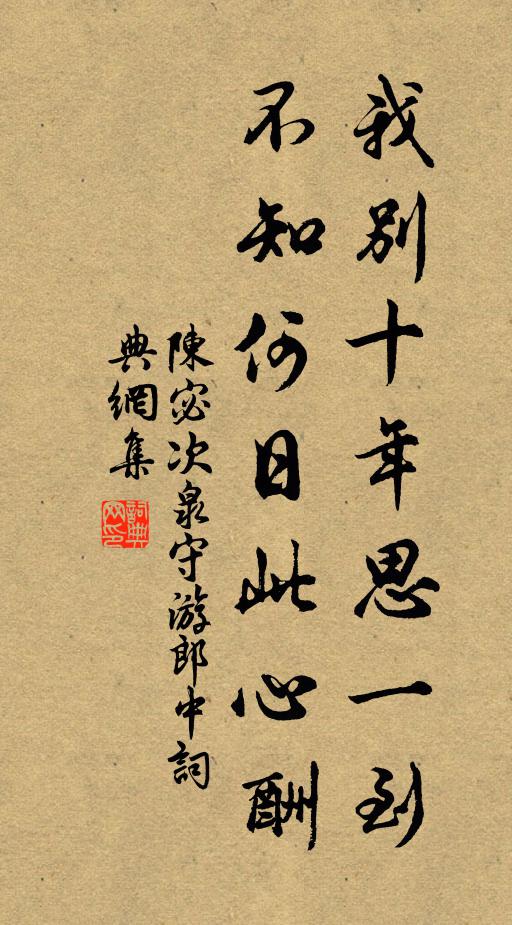 我別十年思一到
不知何日此心酬
陳宓次泉守游郎中詞
典網集
詞典網印